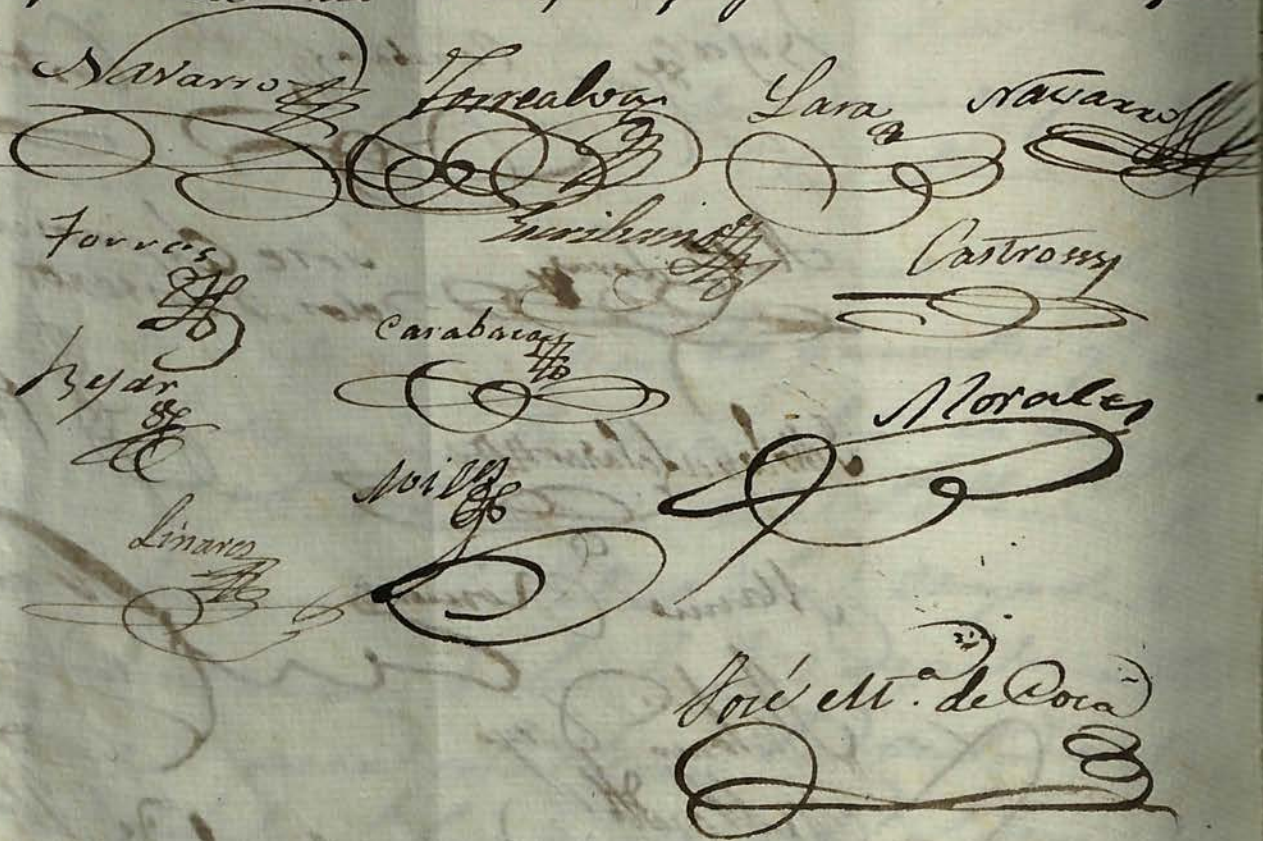 Navarro Torrealva Lara Navarro
Torres Escribano Castro
Carabaca
Bejar Morales
Aviles
Linares
José M.ª de Coca